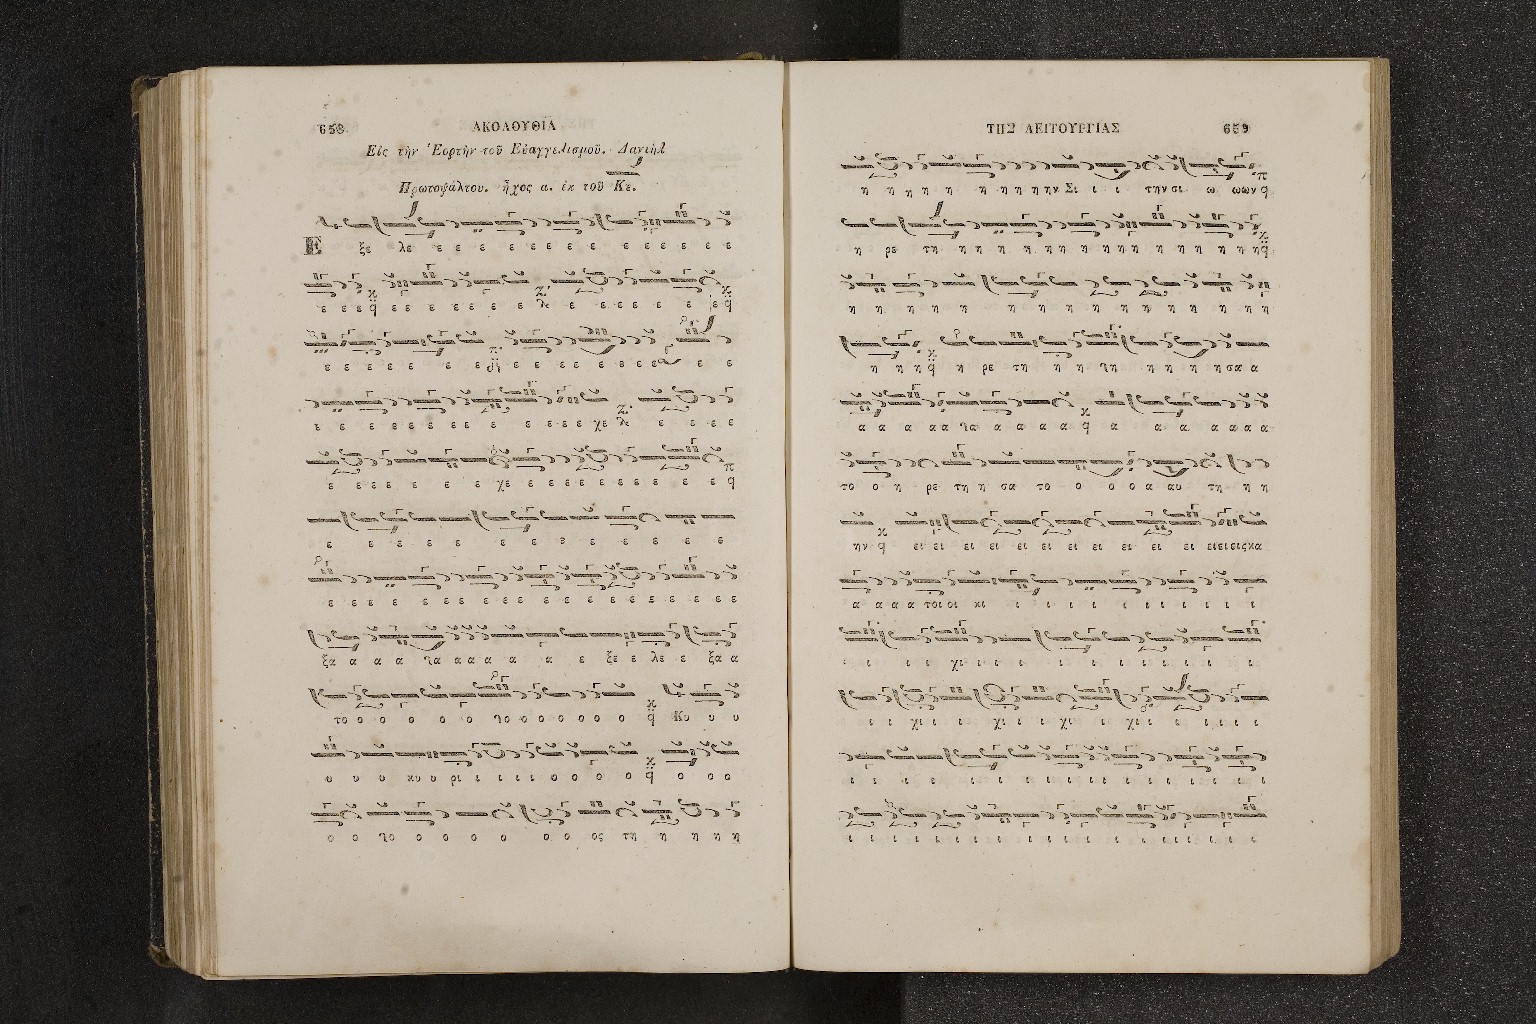 658 ΑΚΟΛΟΥΘΙΑ
Εἰς τὴν Ἑορτὴν τοῦ Εὐαγγελισμοῦ. Δανιὴλ
Πρωτοψάλτου. ἦχος α. ἐκ τοῦ Κε.
Ε ξε λε ε ε ε ε ε ε ε ε ε ε ε ε ε ε ε ε
ε ε ε ε ε ε ε ε ε ε λε ε ε ε ε ε ε ε
ε ε ε ε ε ε ε ε ε ε ε ε ε ε ε ε
ε ε ε ε ε ε ε ε ε ε ε ε ε χε λε ε ε ε ε
ε ε ε ε ε ε χε ε ε ε ε ε ε ε ε ε ε
ε ε ε ε ε ε ε ε ε ε ε ε
ε ε ε ε ε ε ε ε ε ε ε ε ε ε ε ε ε ε
ξα α α α γα α α α α α ε ξε ε λε ε ξα α
το ο ο ο ο ο γο ο ο ο ο ο ο Κυ υ υ
υ υ υ κυ υ ρι ι ι ι ι ο ο ο ο ο ο ο
ο ο γο ο ο ο ο ο ο ος τη η η η η
ΤΗΣ ΛΕΙΤΟΥΡΓΙΑΣ 659
η η η η η η η η η ην Σι ι ι την σι ω ωων
η ρε τη η η η η η η η η η η η η η η η
η η η η η η η η η η η η η η
η η η η ρε τη η η γη η η η η σα α
α α α α α γα α α α α α α α α α α α
το ο η ρε τη η σα το ο ο ο α αυ τη η η
ην ει ει ει ει ει ει ει ει ει ει ειειεις κα
α α α α τοι οι κι ι ι ι ι ι ι ι ι ι ι ι
ι ι ι χι ι ι ι ι ι ι ι ι ι ι ι
ι ι χι ι ι χι ι ι χι ι χι ι ι ι ι ι ι
ι ι ι ε ι ι ι ι ι ι ι ι ι ι ι ι
ι ι ι ι ι ι ι ι ι ι ι ι ι ι ι ι ι ι